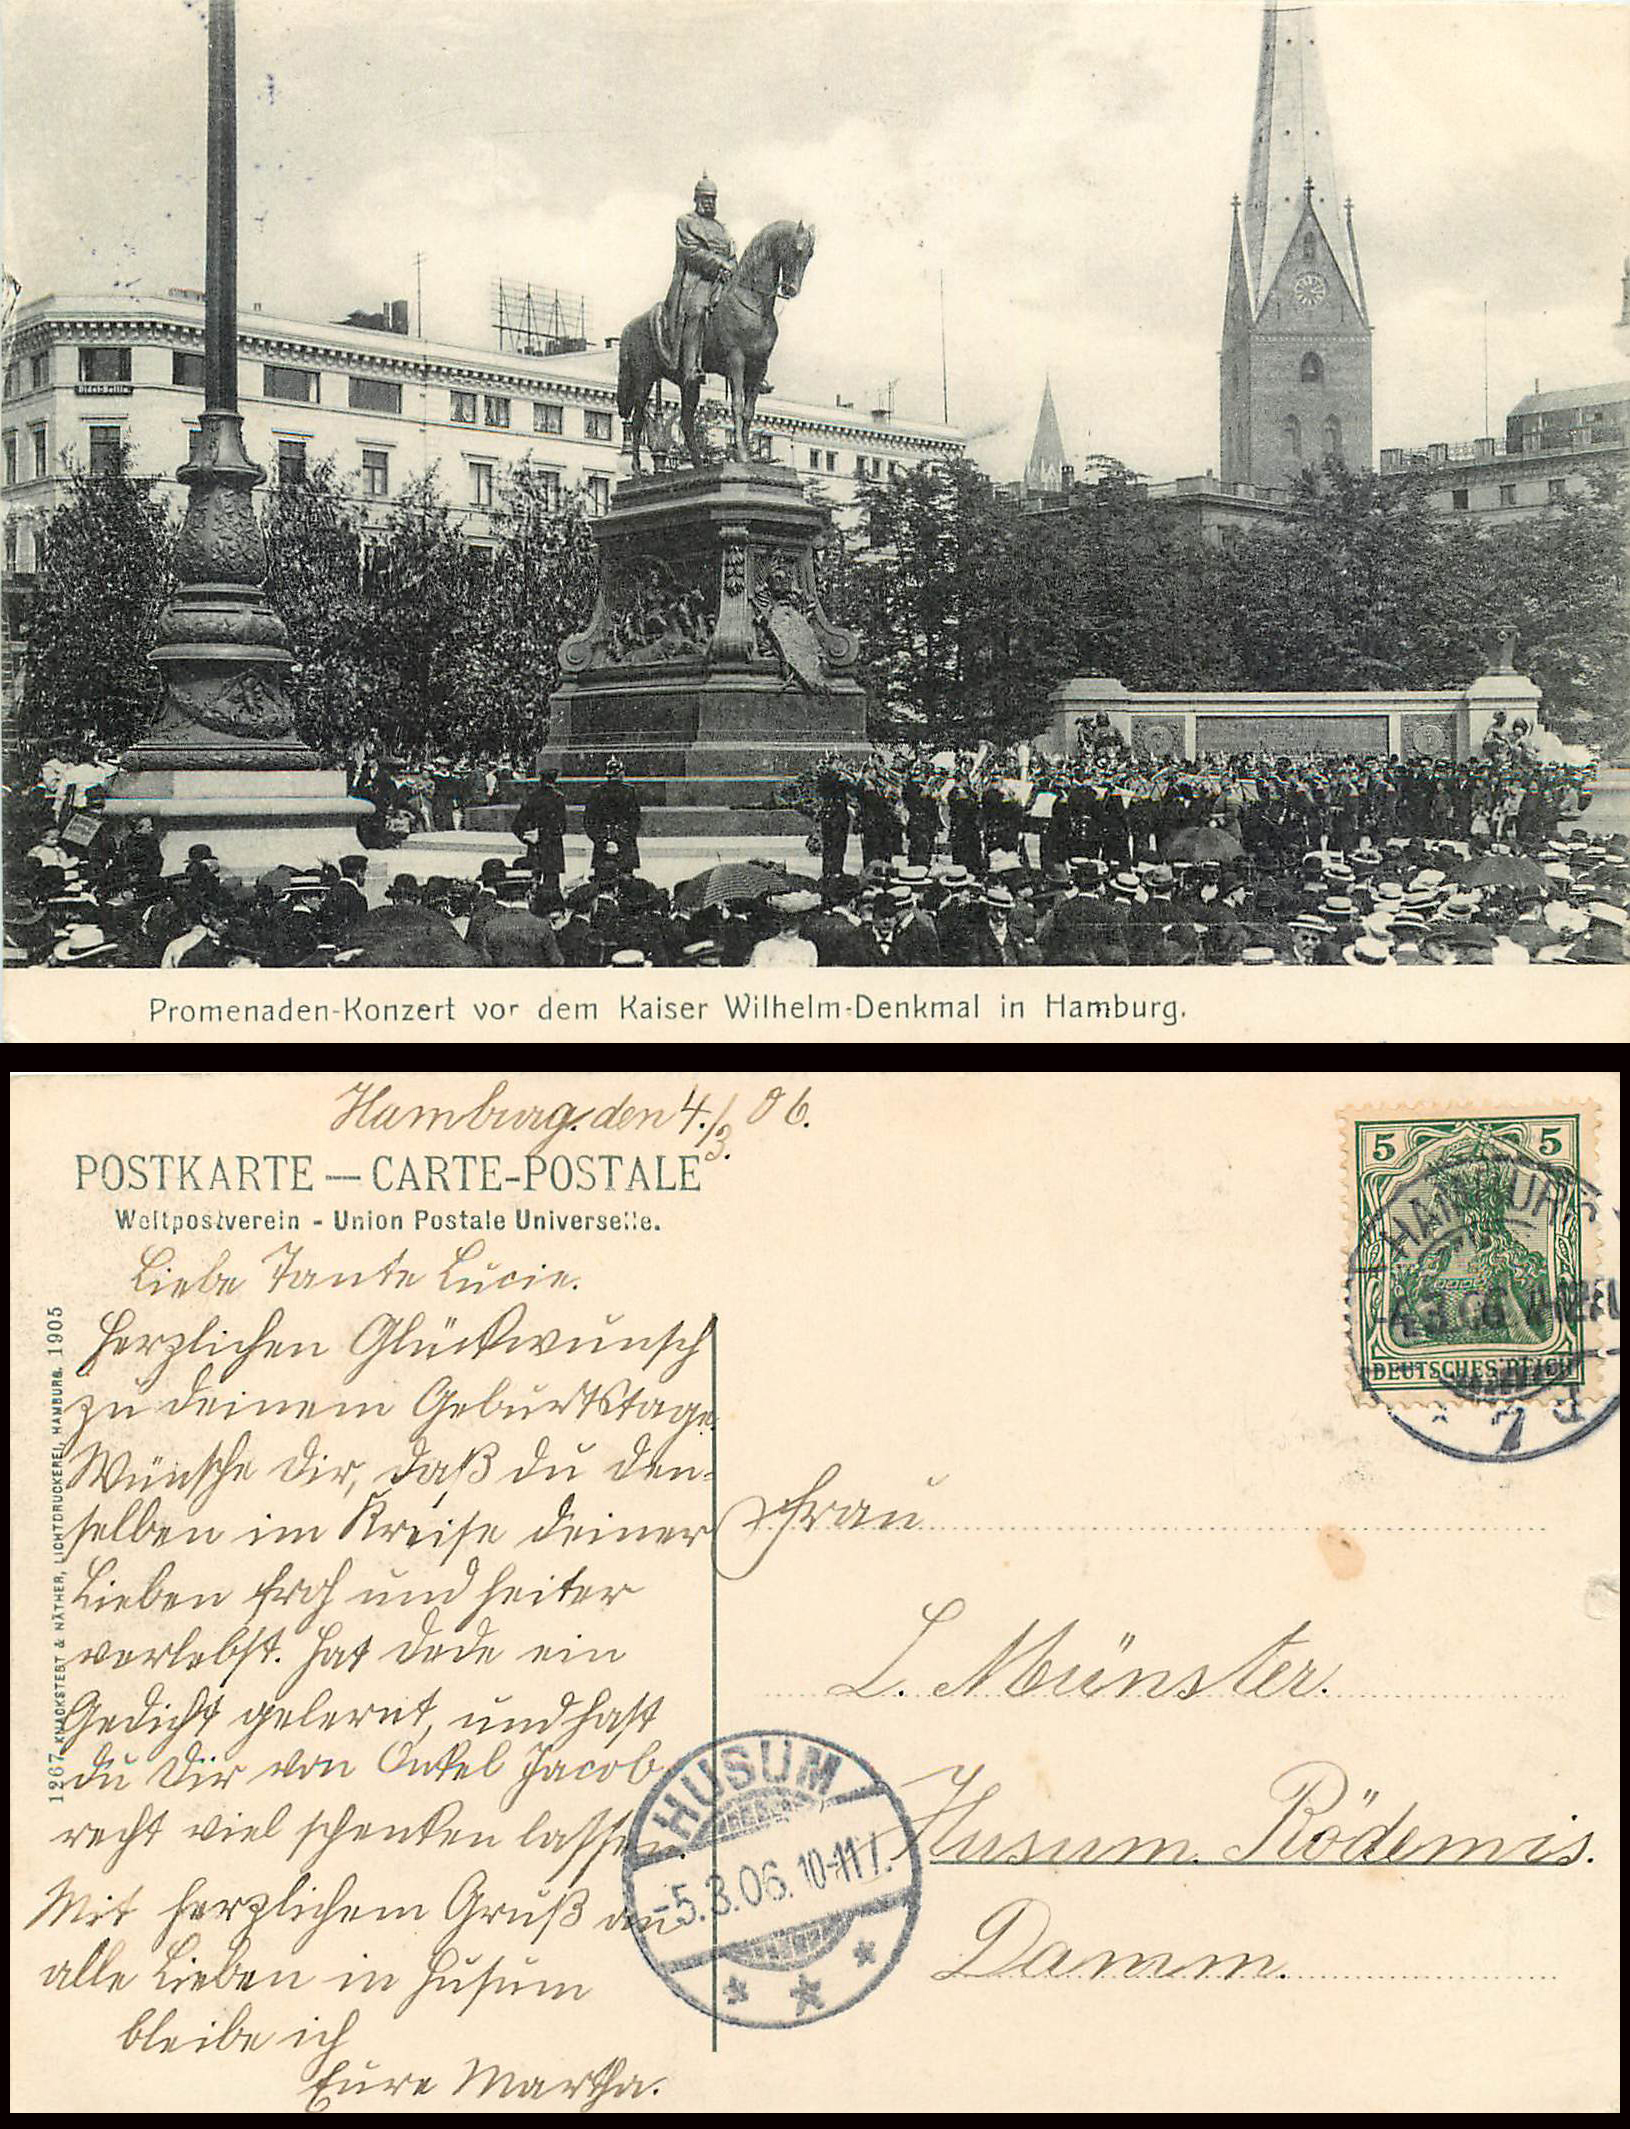 Hôtel-Bellin
Promenaden-Konzert vor dem Kaiser Wilhelm-Denkmal in Hamburg.
Hamburg. den 4./3. 06.
POSTKARTE — CARTE-POSTALE
Weltpostverein - Union Postale Universelle.
5 5
HAMBURG
-4.3.06
DEUTSCHES REICH
* 7 *
Liebe Tante Lucie.
Herzlichen Glückwunsch
zu deinem Geburtstage.
Wünsche Dir, daß du den-
selben im Kreise deiner
Lieben froh und heiter
verlebst. Hat Dede ein
Gedicht gelernt, und hast
du Dir von Onkel Jacob
recht viel schenken lassen.
Mit herzlichem Gruß an
alle Lieben in Husum
bleibe ich
Eure Martha.
1267 KNACKSTEDT & NÄTHER, LICHTDRUCKEREI, HAMBURG. 1905
Frau
L. Münster.
Husum. Rödemis.
Damm.
HUSUM
-5.3.06. 10-11
* * *